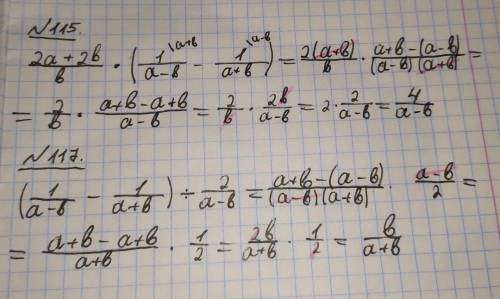 №115.
(2a+2b)/b · (1/(a-b) \a+b - 1/(a+b) \a-b) = 2(a+b)/b · (a+b-(a-b))/((a-b)(a+b)) =
= 2/b · (a+b-a+b)/(a-b) = 2/b · 2b/(a-b) = 2 · 2/(a-b) = 4/(a-b)
№117.
(1/(a-b) - 1/(a+b)) ÷ 2/(a-b) = (a+b-(a-b))/((a-b)(a+b)) · (a-b)/2 =
= (a+b-a+b)/(a+b) · 1/2 = 2b/(a+b) · 1/2 = b/(a+b)